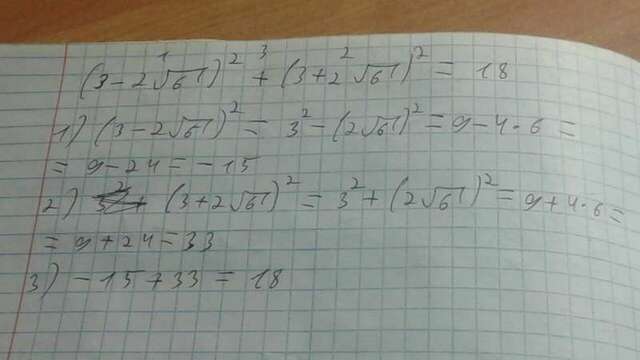 (3-2√6)² + (3+2√6)² = 18
1) (3-2√6)² = 3² - (2√6)² = 9 - 4·6 =
= 9 - 24 = -15
2) (3+2√6)² = 3² + (2√6)² = 9 + 4·6 =
= 9 + 24 = 33
3) -15 + 33 = 18